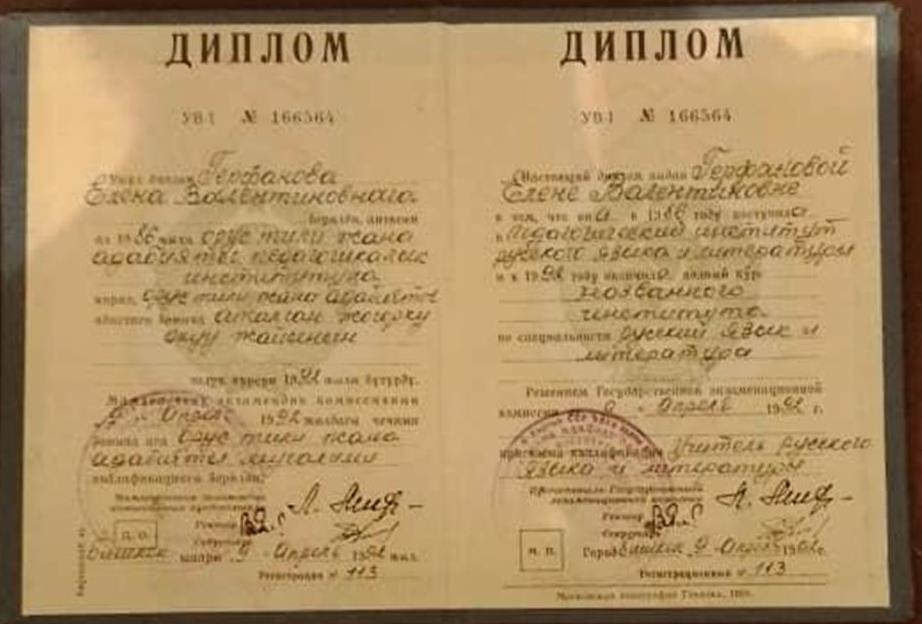 ДИПЛОМ
УВ-I № 166564
Герфанова
Елена Валентиновнага
берилди,
ал 1986 жылы орус тили жана
адабияты педагогикалык
институтуна
кирип, орус тили жана адабияты
адистиги боюнча аталган жогорку
окуу жайынын
толук курсун 1992 жылы бүтүрдү.
Мамлекеттик экзамендик комиссиянын
9 - апрель 1992 жылдагы чечими
боюнча ага орус тили жана
адабияты мугалими
квалификациясы берилди.
Ректор
Секретарь
Бишкек шаары 9 - апрель 1992 жыл
№ 113
ДИПЛОМ
УВ-I № 166564
Настоящий диплом выдан Герфановой
Елене Валентиновне
в том, что она в 1986 году поступила
в Педагогический институт
русского языка и литературы
и в 1992 году окончила полный курс
названного
института
по специальности русский язык и
литература
Решением Государственной экзаменационной
комиссии 9 - апрель 1992 г.
присвоена квалификация Учитель русского
языка и литературы
Председатель Государственной
экзаменационной комиссии
Ректор
Секретарь
М. П.
Город Бишкек 9 - апрель 1992 г.
Регистрационный № 113
Московская типография Гознака.